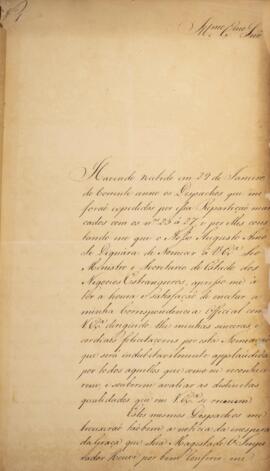 Illmo e Exmo Snr
Havendo recebido em 29 de Janeiro
do Corrente anno os Despachos que me
forão expedidos por essa Repartição mar-
cados com os nos 25 á 27, e por elles cons-
tando me que o Augusto Amo
Se Dignara de Nomear á V. Exa. Seo
Ministro e Secretario de Estado dos
Negocios Estrangeiros, apresso me á
ter a honra e satisfação de encetar a
minha Correspondencia Official com
V. Exa. dirigindo lhe minhas sinceras e
cordiaes felicitaçoens por esta Nomeação
que será indubitavelmente applaudida
por todos aquelles que como eu reconhece-
rem, e souberem avaliar as distinctas
qualidades que em V. Exa. se reunem.
Estes mesmos Despachos me
trouxerão tambem a noticia da inesperada
da Graça que Sua Magestade O Impe-
rador Houve por bem Conferir me